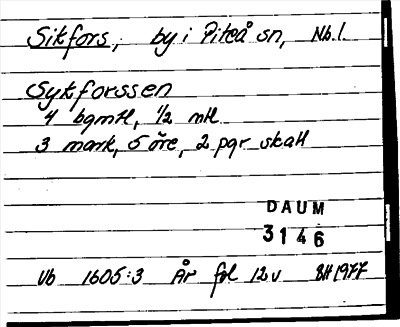 Sikfors, by i Piteå sn, Nb.l.
Sykforssen
4 bgmtl, 1/2 mtl
3 mark, 5 öre, 2 pgr skatt
DAUM
3146
Vb 1605:3 År fol 12v BH 1977